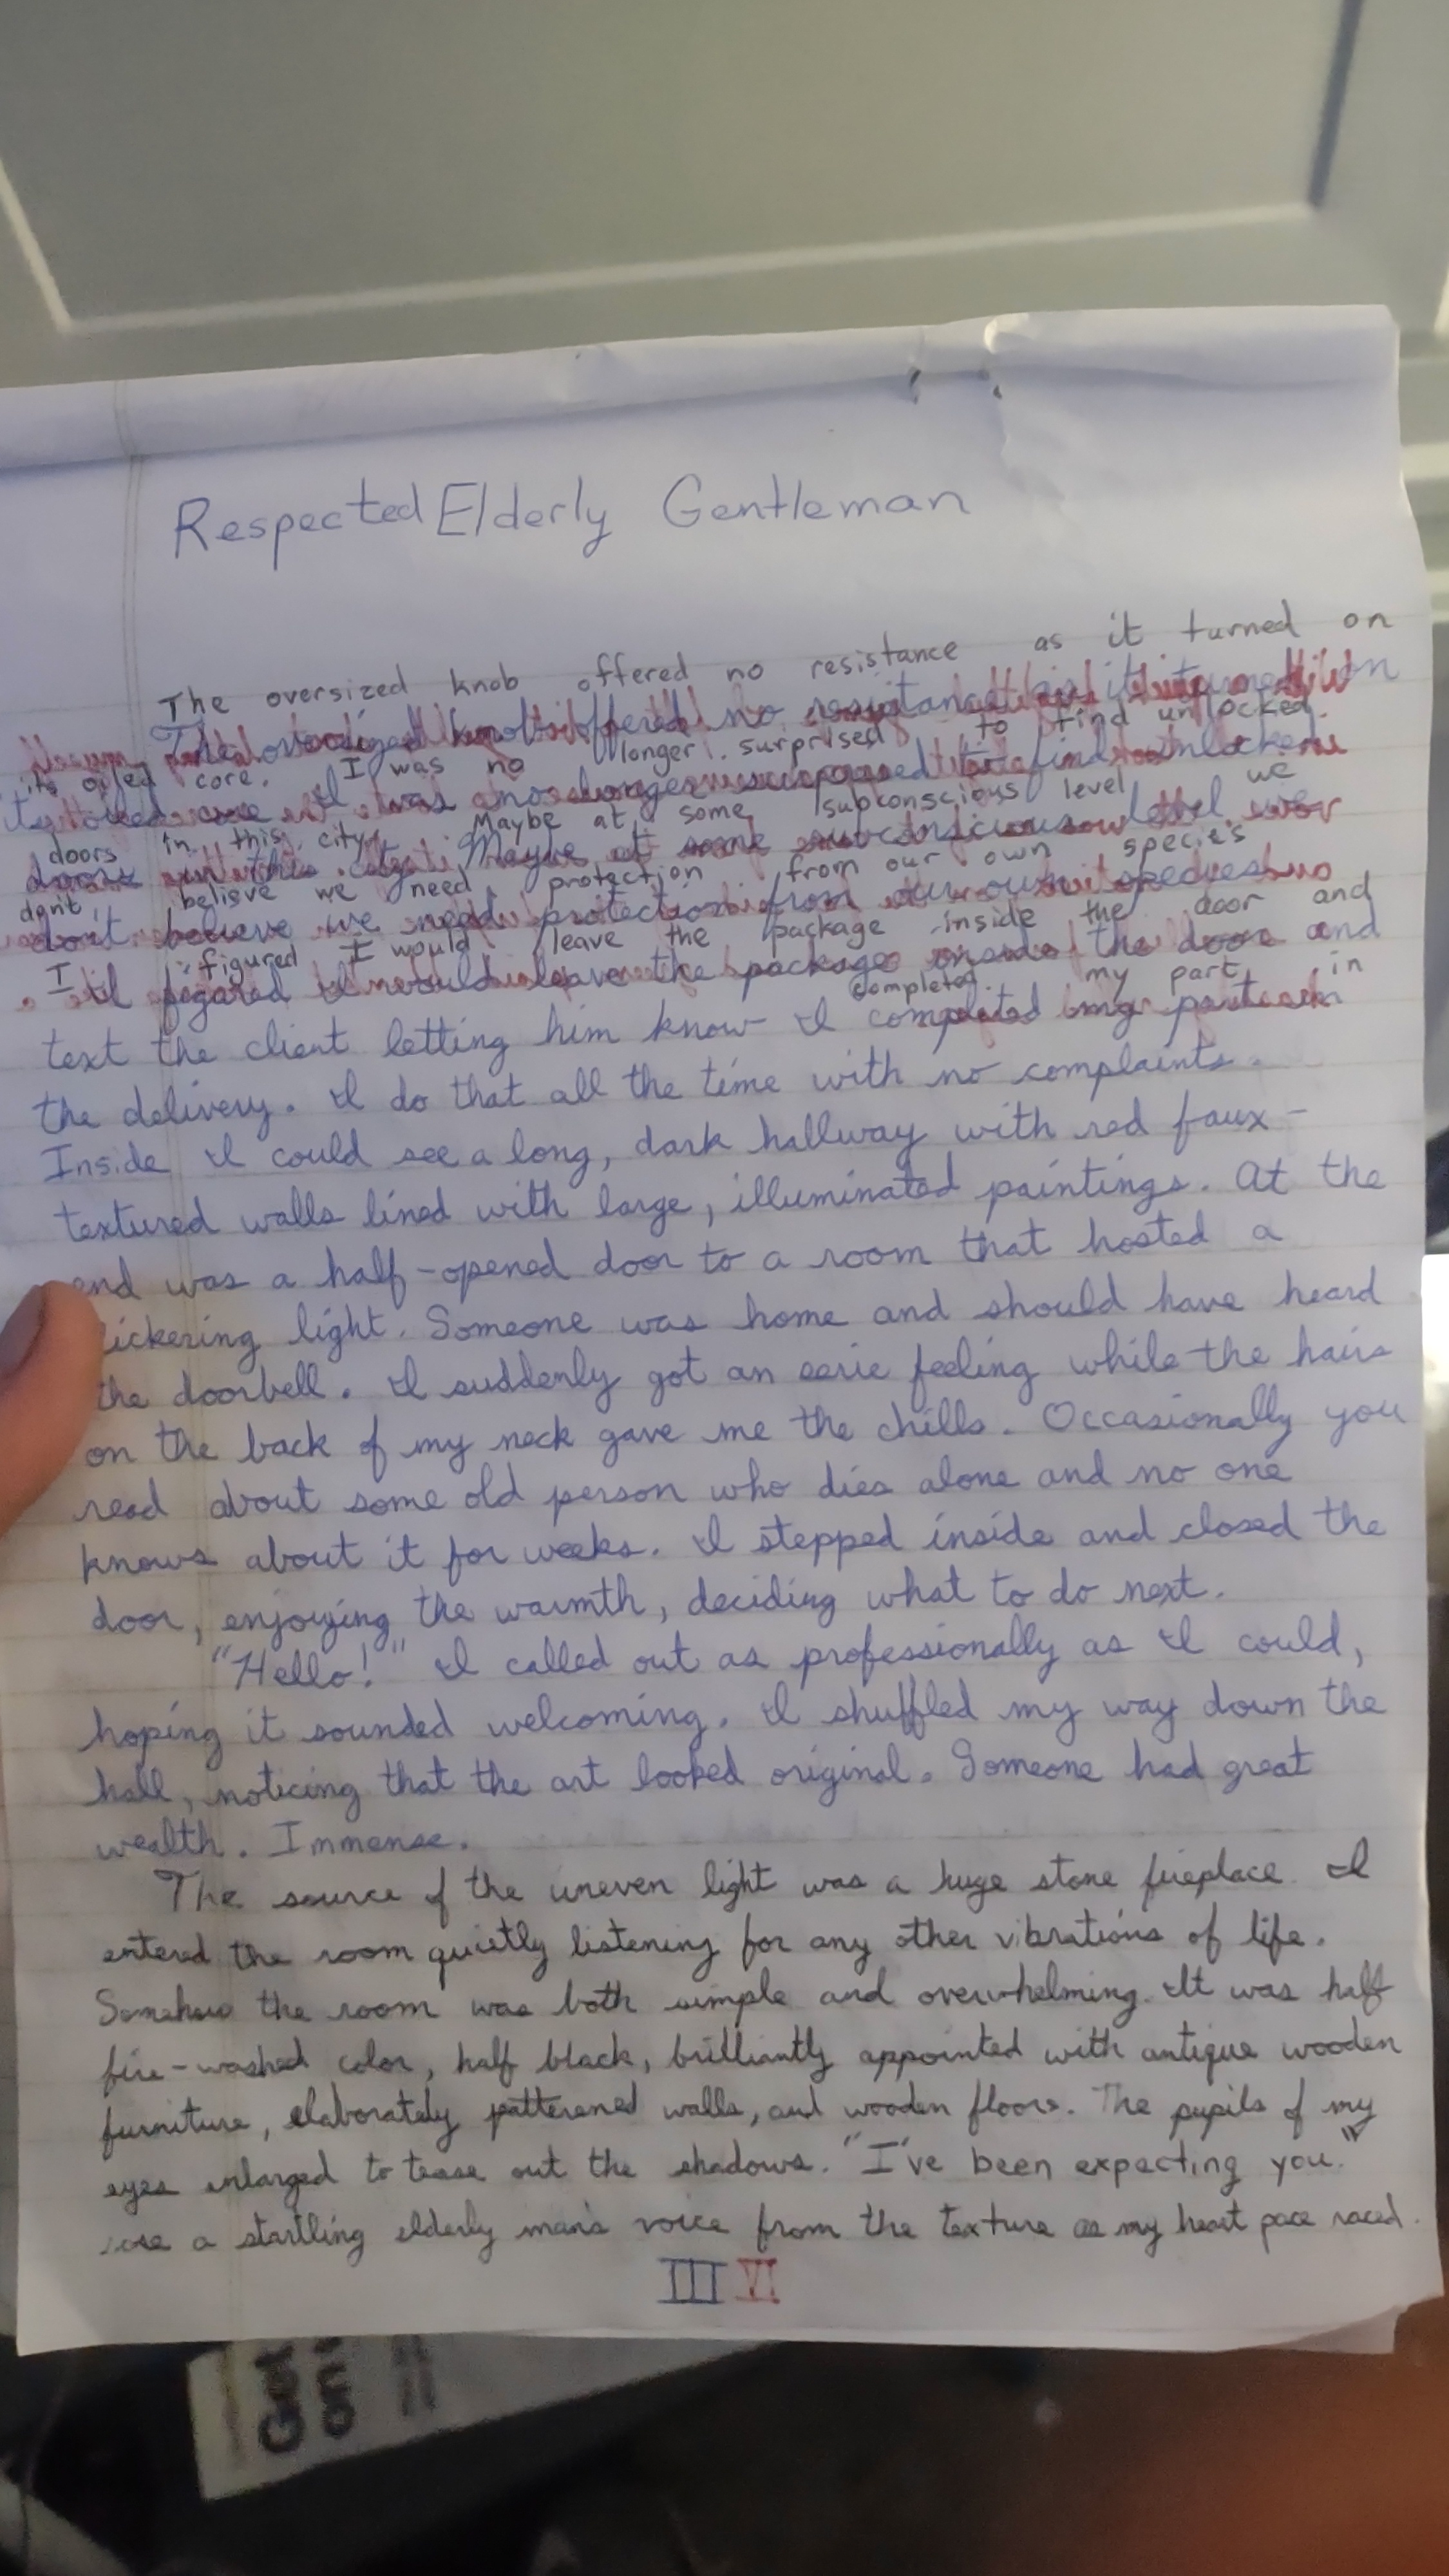 Respected Elderly Gentleman
The oversized knob offered no resistance as it turned on
its oiled core. I was no longer surprised to find unlocked
doors in this city. Maybe at some subconscious level we
don't believe we need protection from our own species
I figured I would leave the package inside the door and
text the client letting him know I completed my part in
the delivery. I do that all the time with no complaints.
Inside I could see a long, dark hallway with red faux-
textured walls lined with large, illuminated paintings. At the
end was a half-opened door to a room that hosted a
lickering light. Someone was home and should have heard
the doorbell. I suddenly got an eerie feeling while the hairs
on the back of my neck gave me the chills. Occasionally you
read about some old person who dies alone and no one
knows about it for weeks. I stepped inside and closed the
door, enjoying the warmth, deciding what to do next.
"Hello!" I called out as professionally as I could,
hoping it sounded welcoming. I shuffled my way down the
hall, noticing that the art looked original. Someone had great
wealth. Immense.
The source of the uneven light was a huge stone fireplace. I
entered the room quietly listening for any other vibrations of life.
Somehow the room was both simple and overwhelming. It was half
fire-washed color, half black, brilliantly appointed with antique wooden
furniture, elaborately patterened walls, and wooden floors. The pupils of my
eyes enlarged to tease out the shadows. "I've been expecting you."
a startling elderly man's voice from the texture as my heart pace raced.
III VI